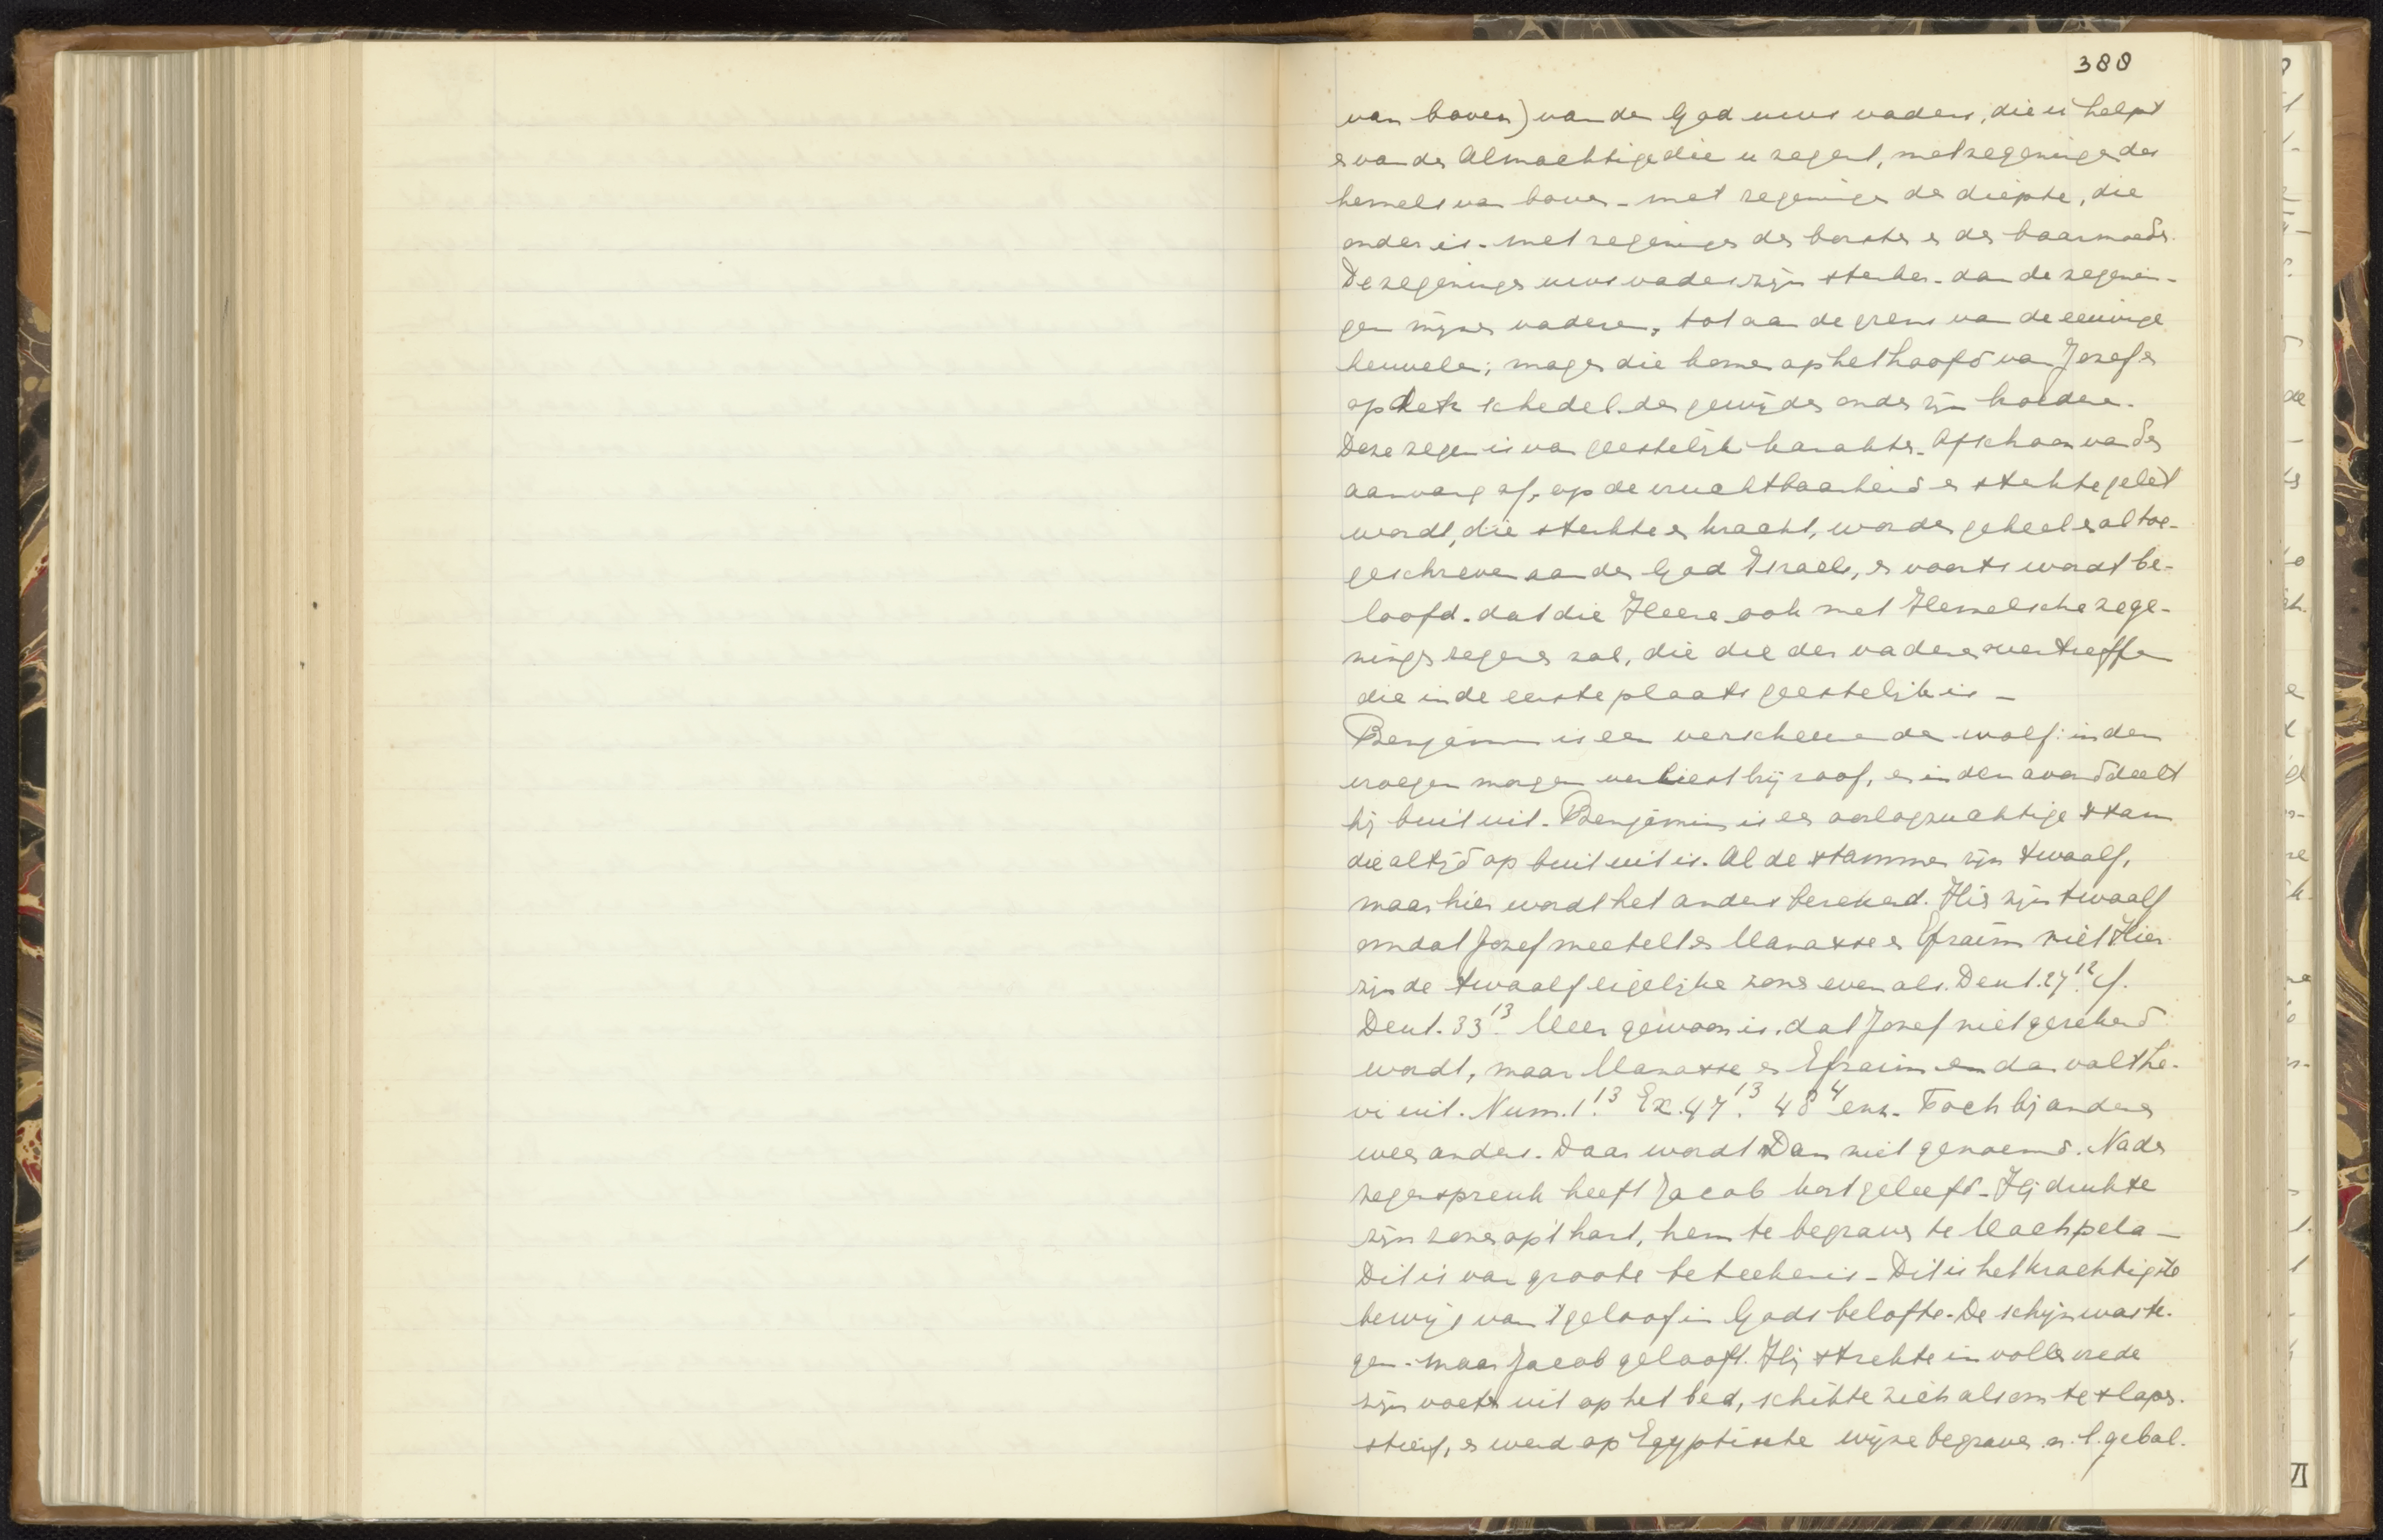 388
van boven) van den God uws vaders, die u helpt
en van den Almachtige die u zegent, met zegeningen des
hemels van boven - met zegeningen der diepte, die
onder is - met zegeningen der borsten en der baarmoeder.
De zegeningen uws vaders zijn sterker - dan de zegenin-
gen mijner vaderen, tot aan de grens van de eeuwige
heuvelen; mogen die komen op het hoofd van Jozef en
op den schedel des gewijden onder zijn broederen.
Deze zegen is van geestelijk karakter. Ofschoon van den
aanvang af, op de vruchtbaarheid en sterkte gelet
wordt, die sterkte en kracht, worden geheel en al toe-
geschreven aan den God Israels, en voorts wordt be-
loofd - dat die Heere ook met Hemelsche zege-
ningen zegenen zal, die die der vaderen overtreffen
die in de eerste plaats geestelijk is -
Benjamin is een verscheurende wolf: in den
vroegen morgen verliest hij roof, en in den avond deelt
hij buit uit. Benjamin is een oorlogzuchtige stam
die altijd op buit uit is. Al de stammen zijn twaalf,
maar hier wordt het anders berekend. Hier zijn twaalf
omdat Jozef meetelt en Manasse en Efraim niet. Hier
zijn de twaalf eigelijke zonen evenals. Deut. 27 12. cf.
Deut. 33 13. Meer gewoon is, dat Jozef niet gerekend
wordt, maar Manasse en Efraim en dan valt Le-
vi uit. Num. 1 13. Ex. 47 13. 48 4 enz. Toch bij anderen
weer anders. Daar wordt Dan niet genoemd. Na de
zegenspreuk heeft Jacob kort geleefd. Hij drukte
zijn zonen op 't hart, hem te begraven te Machpela -
Dit is van groote beteekenis - Dit is het krachtigste
bewijs van 't geloof in Gods belofte. De schijn was te-
gen - maar Jacob gelooft. Hij strekte in volle vrede
zijn voeten uit op het bed, schikte zich als om te slapen.
stierf, en werd op Egyptische wijze begraven n.l. gebal-
VI